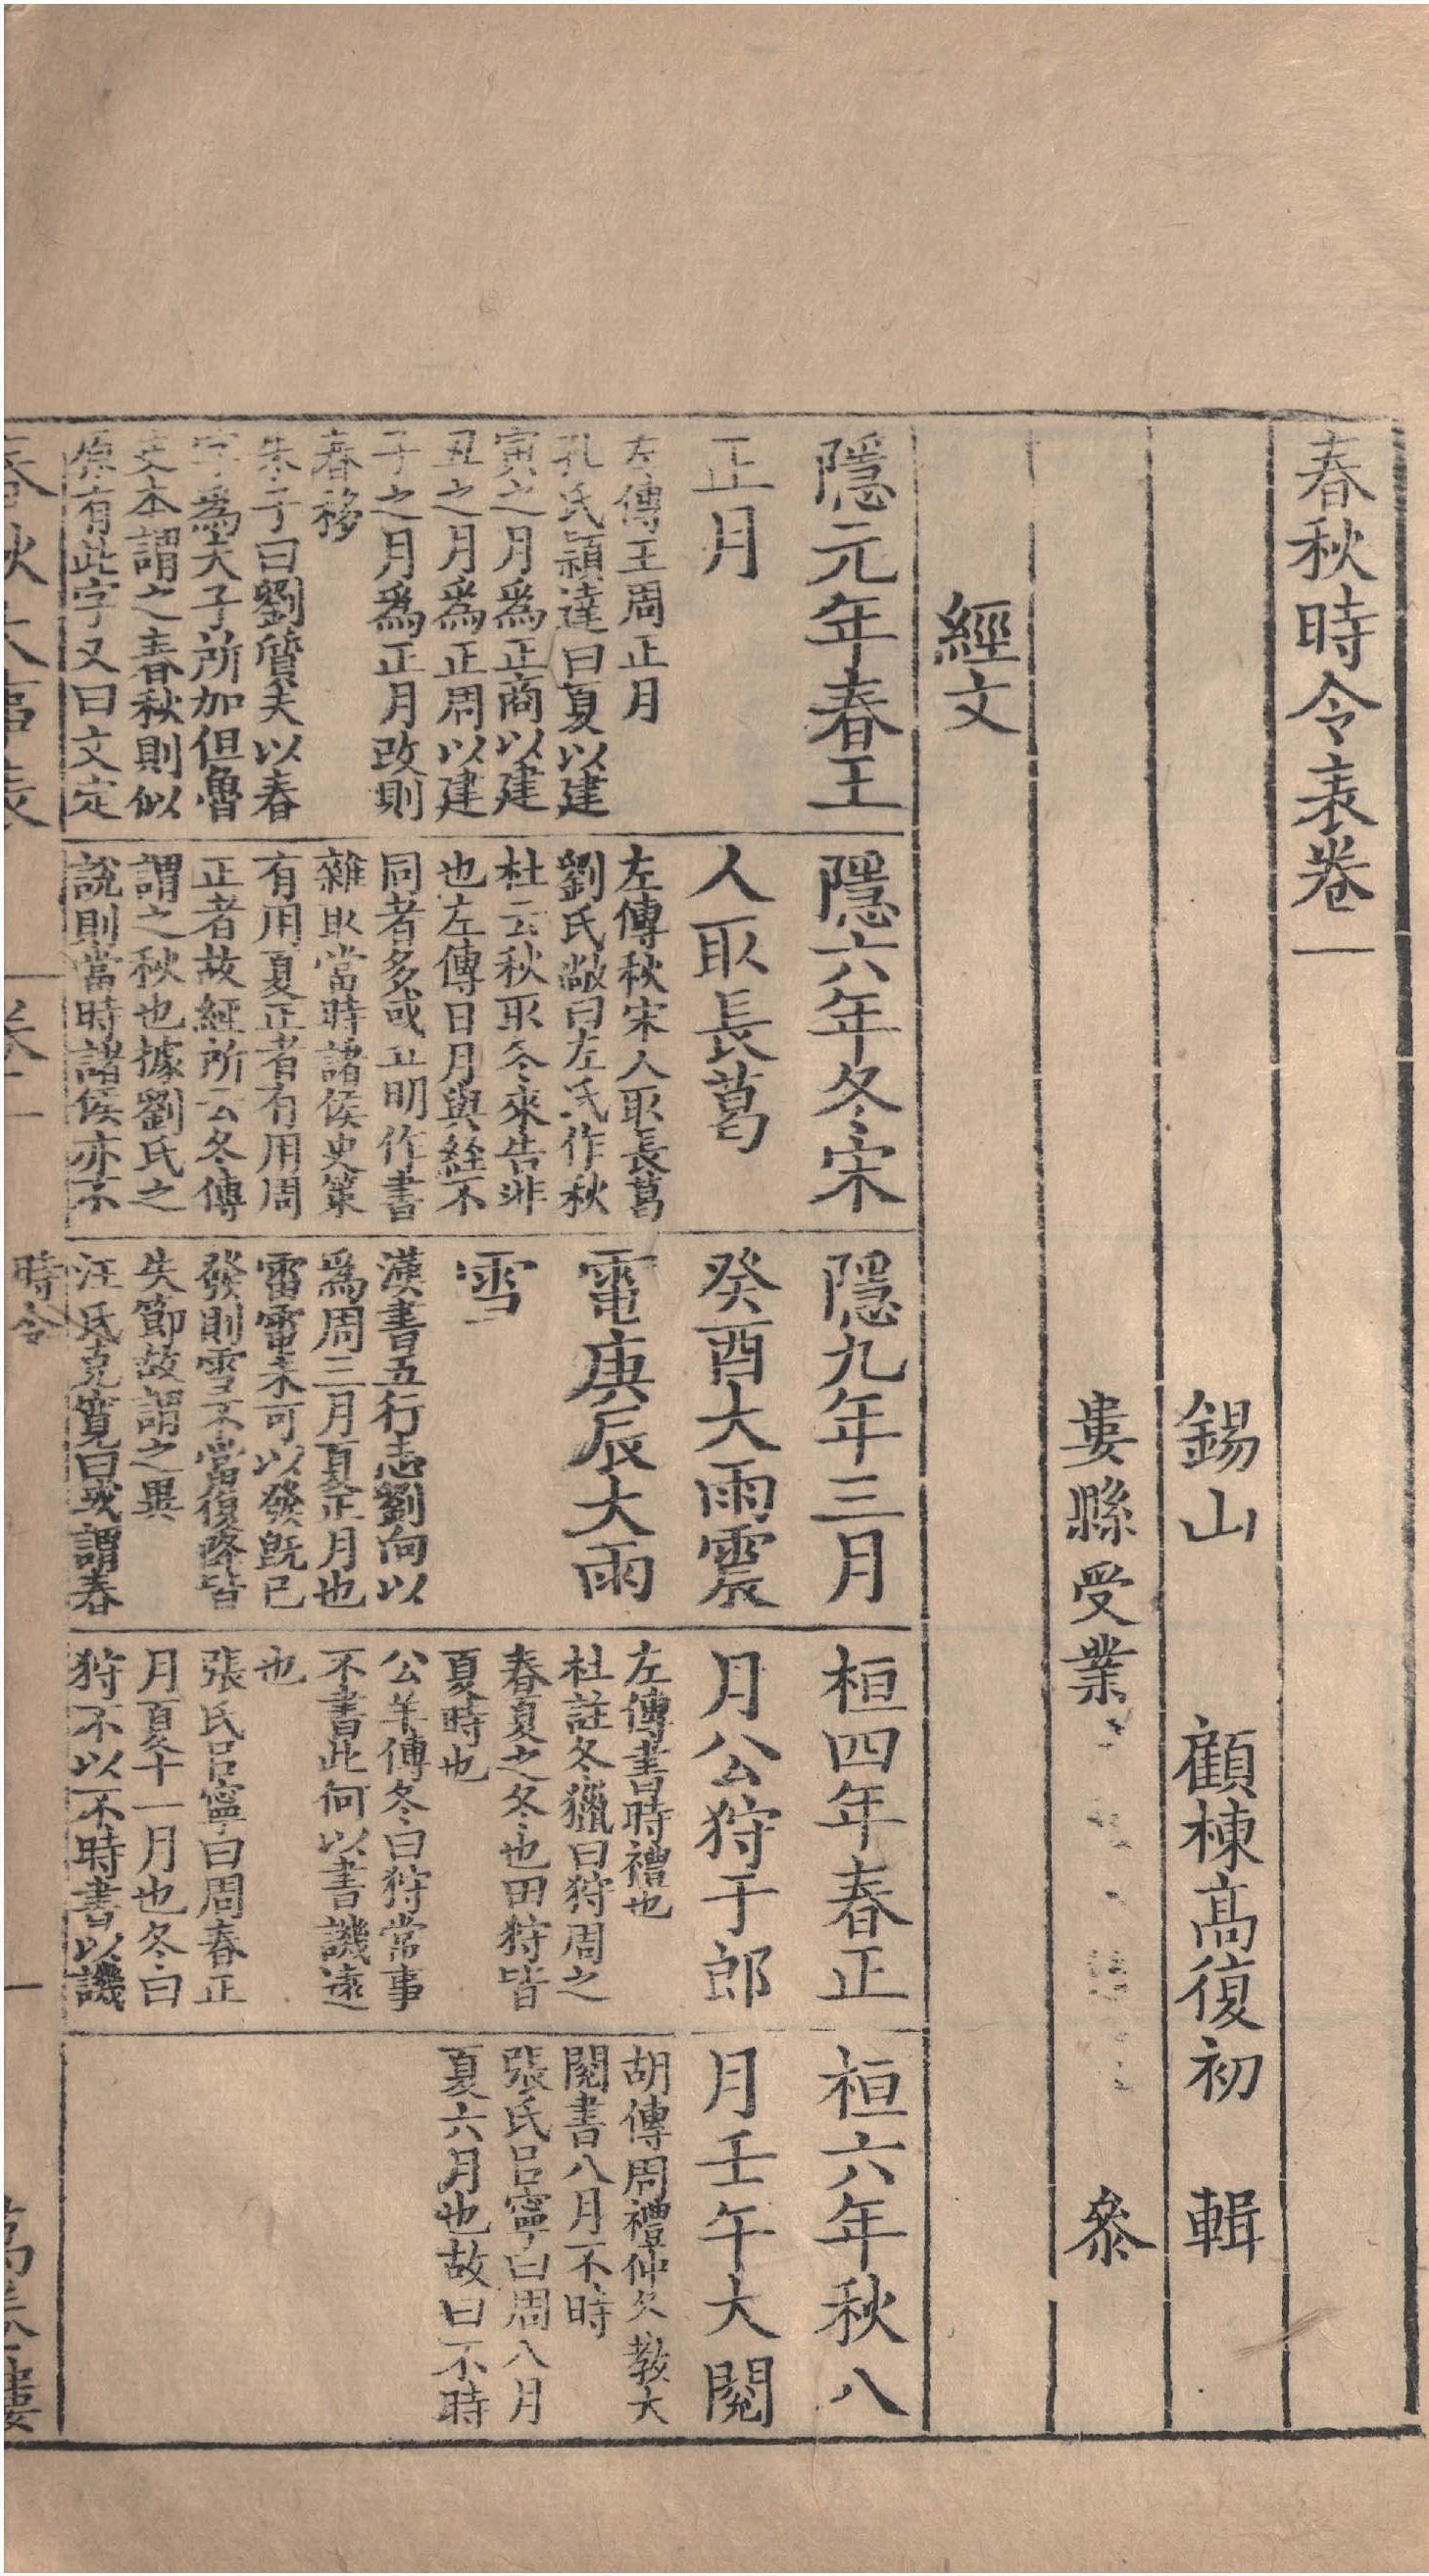 春秋時令表卷一
錫山 顧棟高復初 輯
婁縣受業 參
經文
隱元年春王
正月
左傳王周正月
孔氏穎達曰夏以建
寅之月爲正商以建
丑之月爲正周以建
子之月爲正月改則
春移
朱子曰劉質夫以春
字爲夫子所加但魯
史本謂之春秋則似
原有此字又曰文定
隱六年冬宋
人取長葛
左傳秋宋人取長葛
劉氏敞曰左氏作秋
杜云秋取冬來告非
也左傳日月與經不
同者多或丘明作書
雜取當時諸侯史策
有用夏正者有用周
正者故經所云冬傳
謂之秋也據劉氏之
說則當時諸侯亦不
隱九年三月
癸酉大雨震
電庚辰大雨
雪
漢書五行志劉向以
爲周三月夏正月也
雷電未可以發旣已
發則雪不當復降皆
失節故謂之異
汪氏克寬曰或謂春
桓四年春正
月公狩于郎
左傳書時禮也
杜註冬獵曰狩周之
春夏之冬也田狩皆
夏時也
公羊傳冬曰狩常事
不書此何以書譏遠
也
張氏呂寧曰周春正
月夏十一月也冬曰
狩不以不時書以譏
桓六年秋八
月壬午大閱
胡傳周禮仲冬教大
閱書八月不時
張氏呂寧曰周八月
夏六月也故曰不時
春秋大事表 卷一 時令 一 萬卷樓